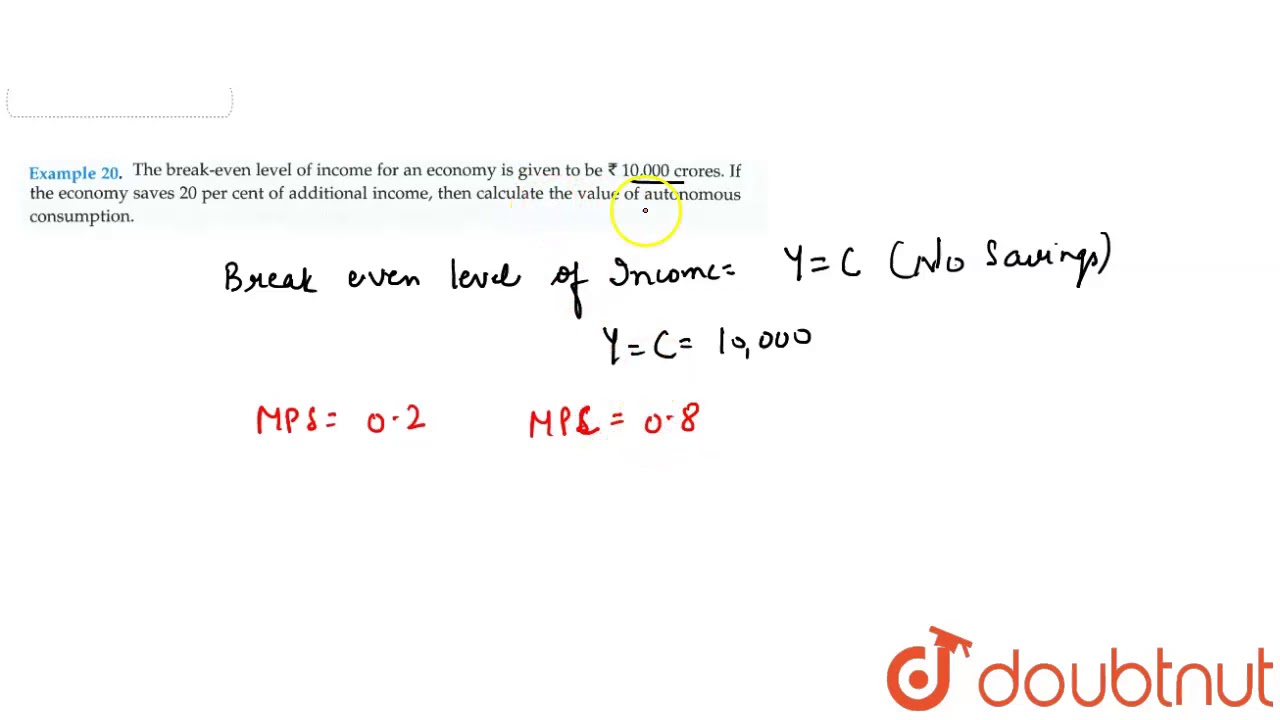 Example 20. The break-even level of income for an economy is given to be ₹ 10,000 crores. If
the economy saves 20 per cent of additional income, then calculate the value of autonomous
consumption.
Break even level of Income = Y = C (No Savings)
Y = C = 10,000
MPS = 0.2 MPC = 0.8
doubtnut